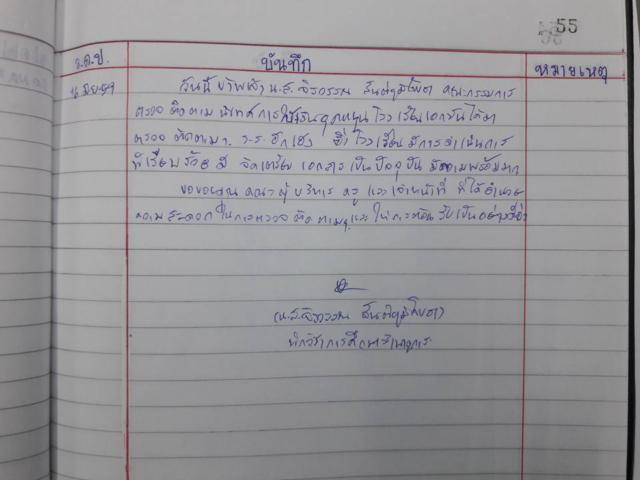 55
ว.ด.ป. บันทึก หมายเหตุ
วันนี้ ข้าพเจ้า น.ส.จิรวรรณ คณะกรรมการ
ตรวจ ติดตาม นิเทศการใช้เงินอุดหนุน โรงเรียนเอกชนได้มา
ตรวจ ติดตามฯ ร.ร.ฮั่วเฮง ซึ่งโรงเรียนมีการดำเนินการ
ที่เรียบร้อย มี จัดเตรียม เอกสาร เป็นปัจจุบัน มีความพร้อมมาก
ขอขอบคุณ คณะผู้บริหาร ครู และเจ้าหน้าที่ ที่ได้อำนวย
ความสะดวก ในการตรวจ ติดตามฯ และให้การต้อนรับเป็นอย่างดียิ่ง
(น.ส.จิรวรรณ
นักวิชาการศึกษาชำนาญการ